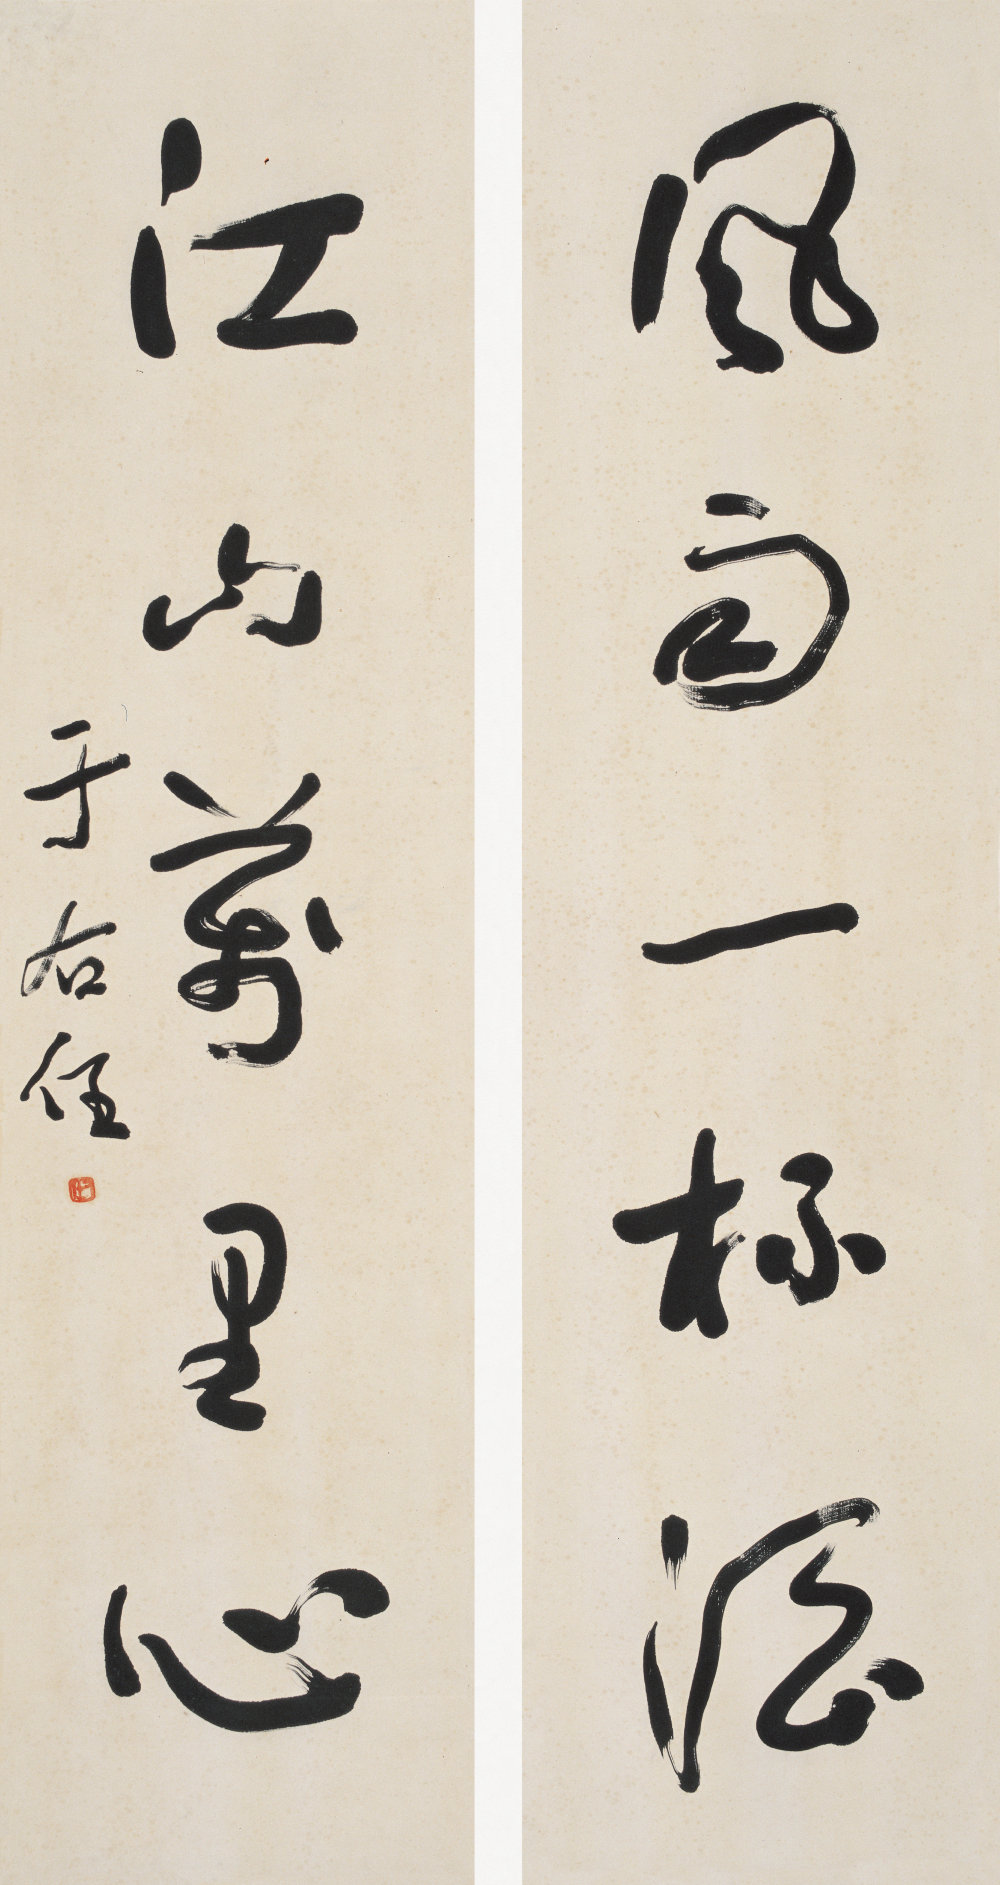 風雨一杯
江山萬里心
于右任